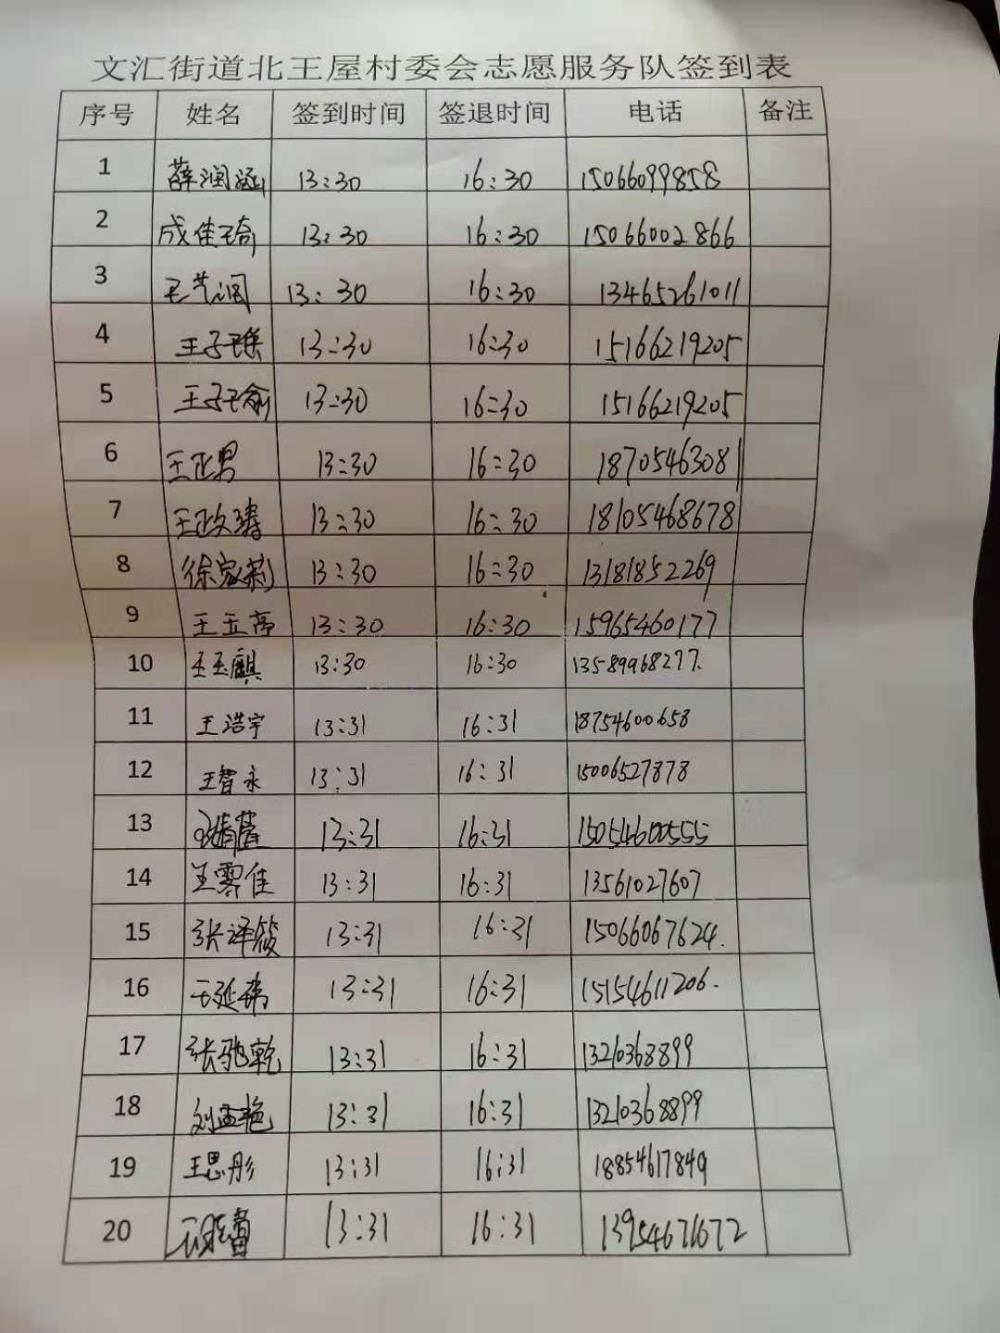 文汇街道北王屋村委会志愿服务队签到表
序号 姓名 签到时间 签退时间 电话 备注
1 薛润涵 13:30 16:30 15066099858
2 成佳琦 13:30 16:30 15066002866
3 王艺润 13:30 16:30 13465261011
4 王子瑛 13:30 16:30 15166219205
5 王子瑜 13:30 16:30 15166219205
6 王正男 13:30 16:30 18705463081
7 王政涛 13:30 16:30 18105468678
8 徐家莉 13:30 16:30 13181852269
9 王玉亭 13:30 16:30 15965460177
10 王玉麒 13:30 16:30 13589968277.
11 王浩宇 13:31 16:31 18754600658
12 王智永 13:31 16:31 15006527878
13 13:31 16:31 15054600555
14 王雾佳 13:31 16:31 13561027607
15 张译筱 13:31 16:31 15066067624.
16 王延 13:31 16:31 15154611206.
17 张驰乾 13:31 16:31 13210368899
18 刘孟艳 13:31 16:31 13210368899
19 王思彤 13:31 16:31 18854617849
20 13:31 16:31 13954671672